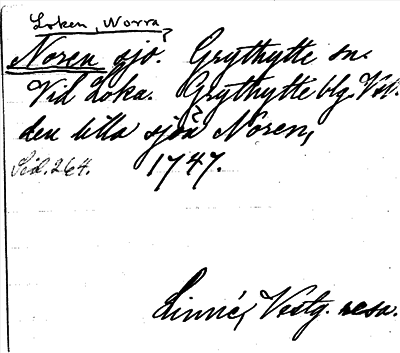 Loken, Norra?
Noren sjö. Grythytte sn.
Vid Loka. Grythytte blg Vstm.
den lilla sjön Noren,
Sid. 264. 1747.
Linné, Vestg. resa.